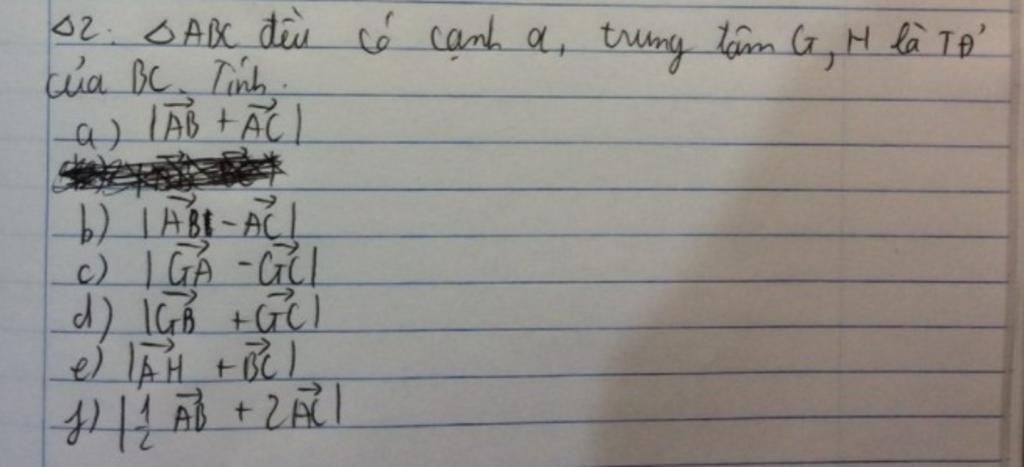 Δ2. ΔABC đều có cạnh a, trung tâm G, H là TĐ'
của BC. Tính.
a) |\overrightarrow{AB} + \overrightarrow{AC}|
b) |\overrightarrow{AB} - \overrightarrow{AC}|
c) |\overrightarrow{GA} - \overrightarrow{GC}|
d) |\overrightarrow{GB} + \overrightarrow{GC}|
e) |\overrightarrow{AH} + \overrightarrow{BC}|
f) |\frac{1}{2} \overrightarrow{AB} + 2\overrightarrow{AC}|